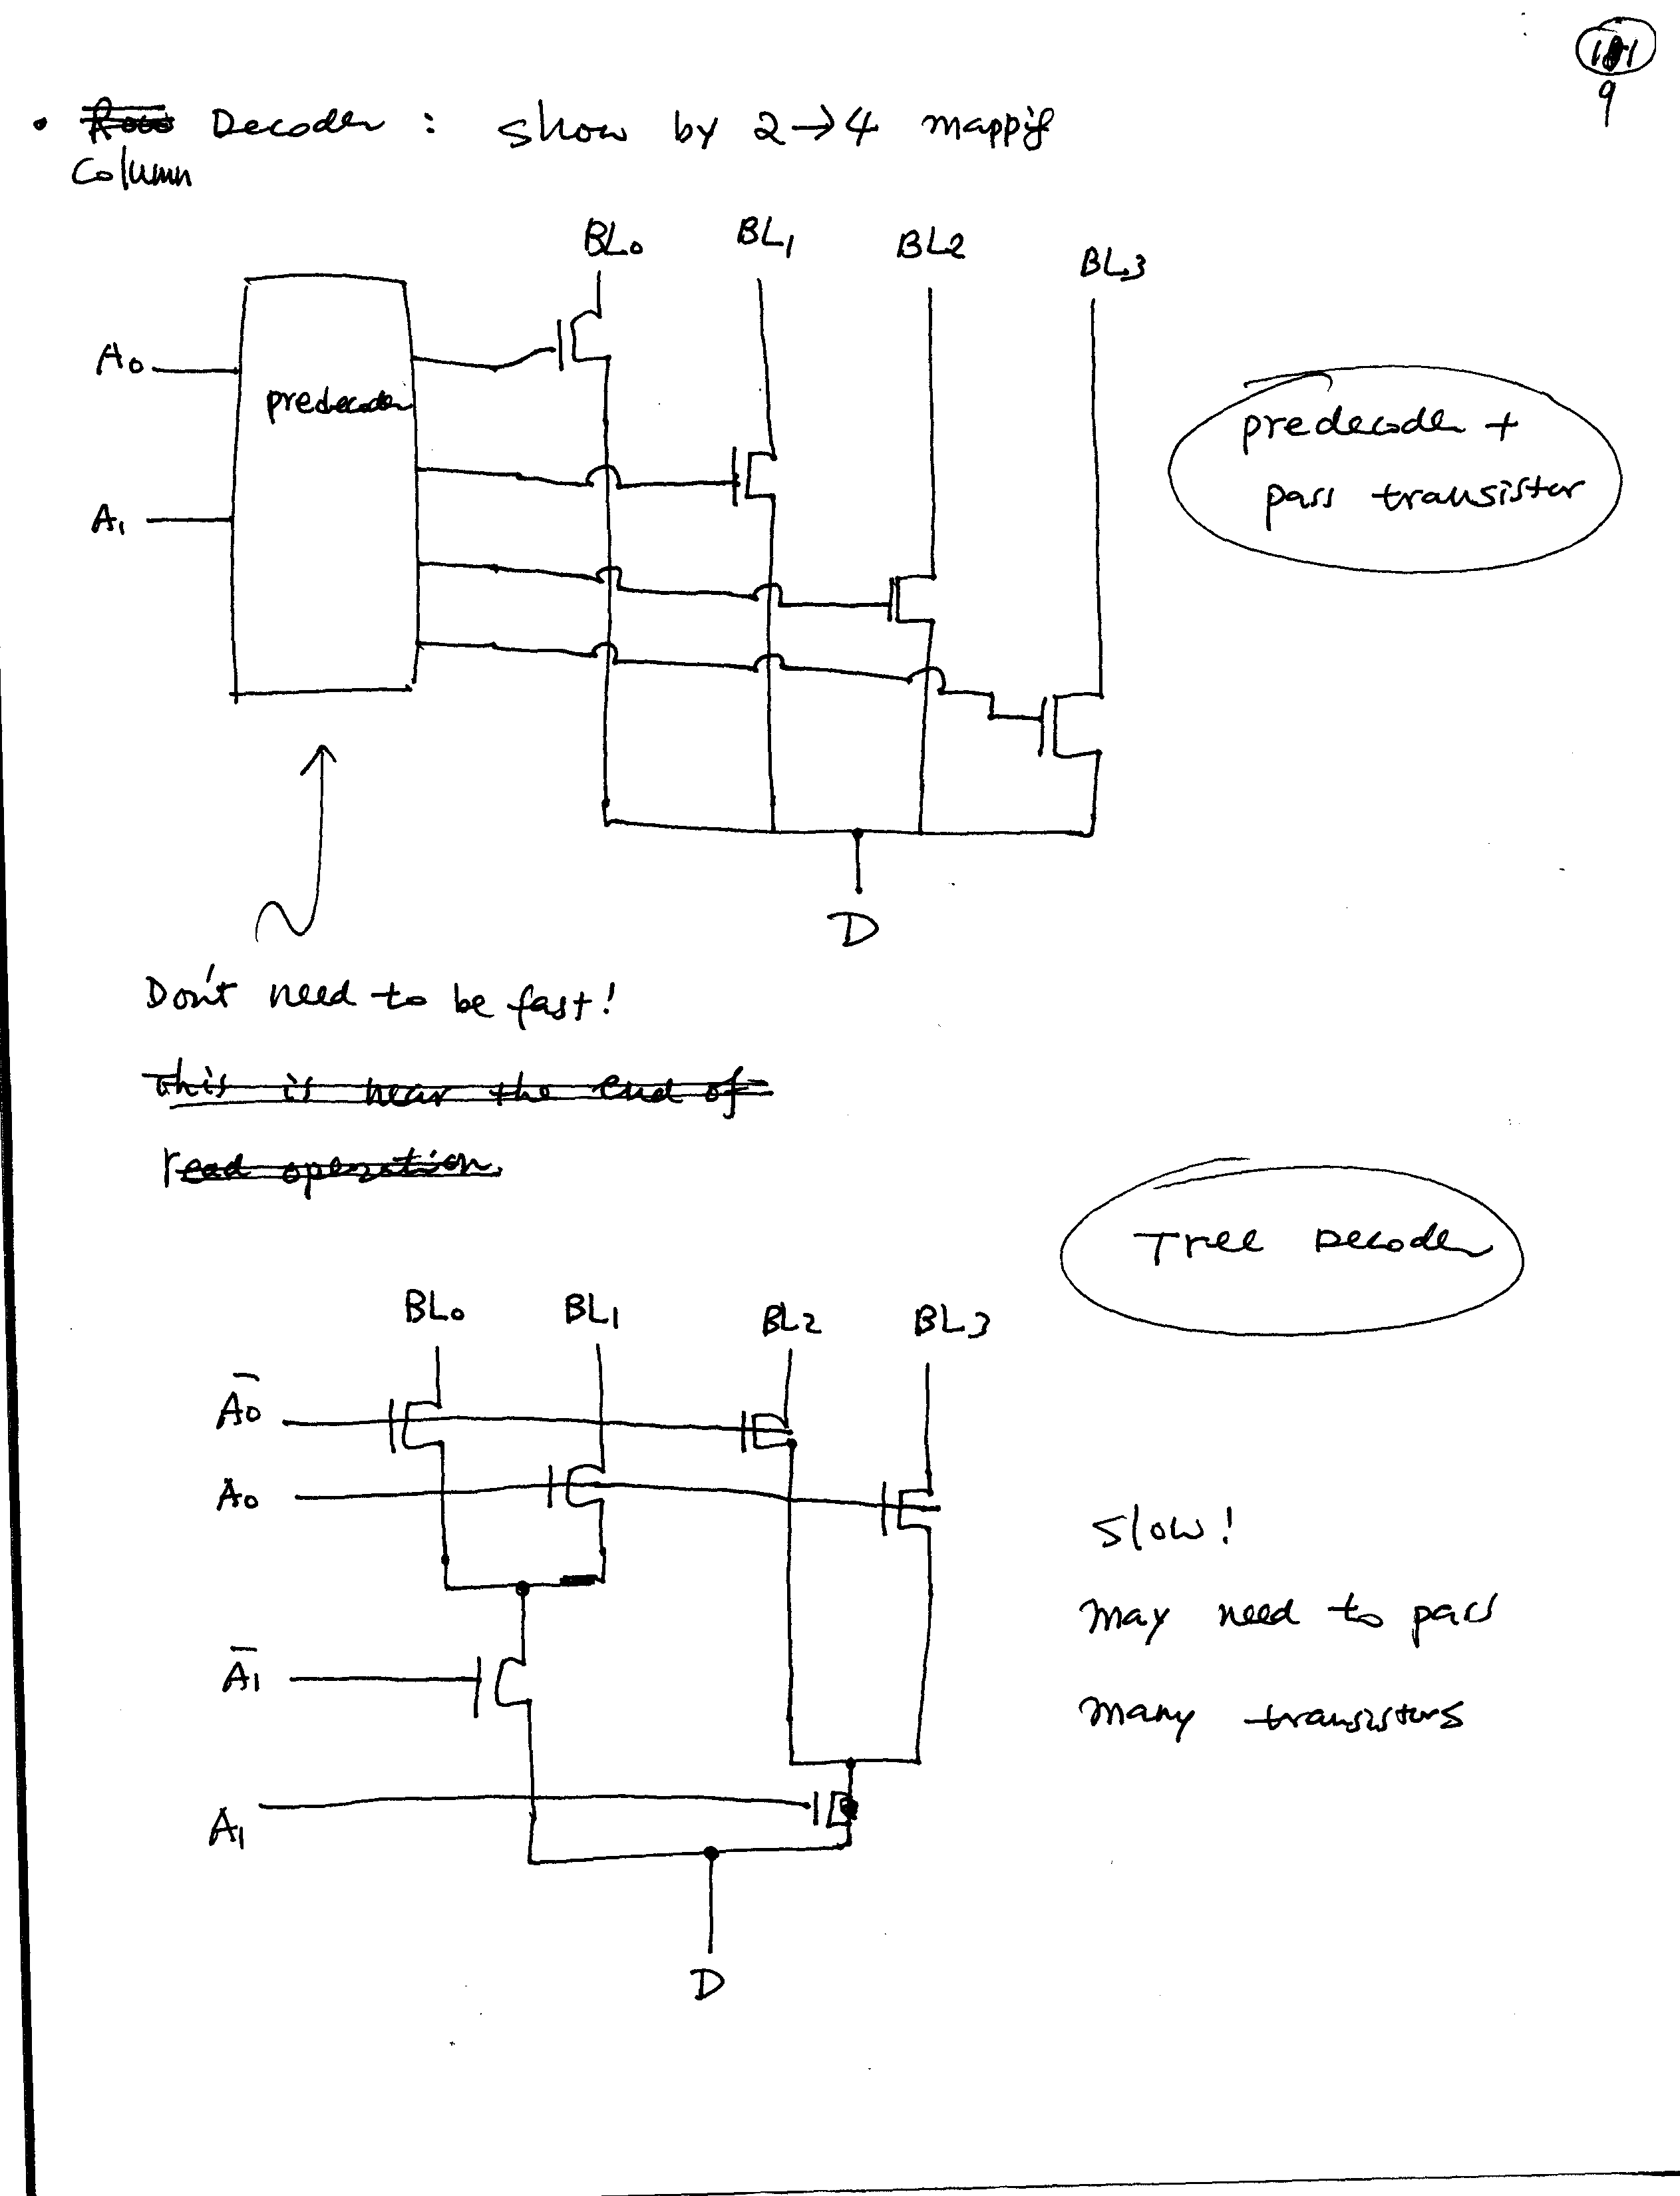 9
• Row Decoder : show by 2→4 mappig
Column
BL0 BL1 BL2 BL3
A0
predecoder
A1
predecoder +
pass transistor
D
Don't need to be fast!
This is near the end of
read operation.
Tree Decoder
BL0 BL1 BL2 BL3
A̅0̅
A0
slow!
may need to pass
A̅1̅
many transistors
A1
D